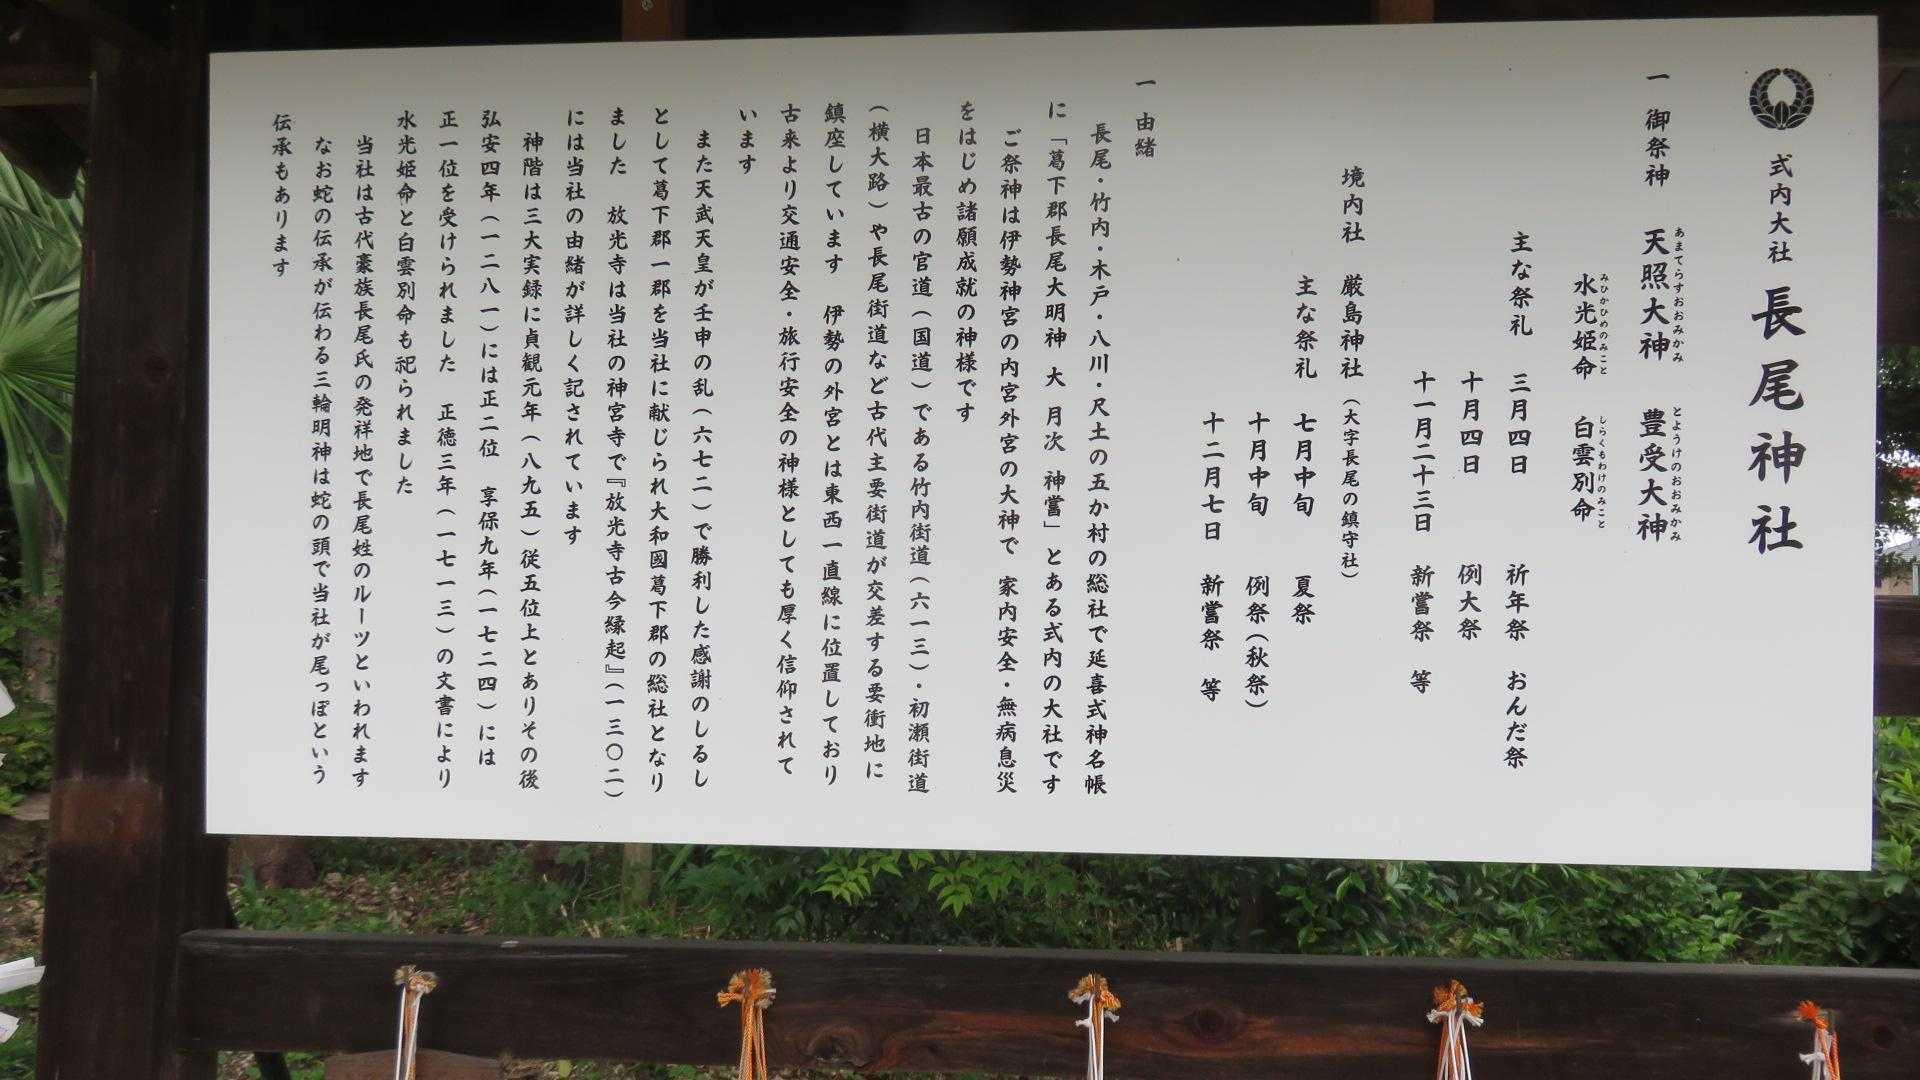 式内大社 長尾神社
一 御祭神 天照大神 豊受大神
あまてらすおおみかみ とようけのおおみかみ
水光姫命 白雲別命
みひかひめのみこと しらくもわけのみこと
主な祭礼 三月四日 祈年祭 おんだ祭
十月四日 例大祭
十一月二十三日 新嘗祭 等
境内社 厳島神社（大字長尾の鎮守社）
主な祭礼 七月中旬 夏祭
十月中旬 例祭（秋祭）
十二月七日 新嘗祭 等
一 由緒
長尾・竹内・木戸・八川・尺土の五か村の総社で延喜式神名帳
に「葛下郡長尾大明神 大 月次 神嘗」とある式内の大社です
ご祭神は伊勢神宮の内宮外宮の大神で 家内安全・無病息災
をはじめ諸願成就の神様です
日本最古の官道（国道）である竹内街道（六一三）・初瀬街道
（横大路）や長尾街道など古代主要街道が交差する要衝地に
鎮座しています 伊勢の外宮とは東西一直線に位置しており
古来より交通安全・旅行安全の神様としても厚く信仰されて
います
また天武天皇が壬申の乱（六七二）で勝利した感謝のしるし
として葛下郡一郡を当社に献じられ大和國葛下郡の総社となり
ました 放光寺は当社の神宮寺で『放光寺古今縁起』（一三〇二）
には当社の由緒が詳しく記されています
神階は三大実録に貞観元年（八九五）従五位上とありその後
弘安四年（一二八一）には正二位 享保九年（一七二四）には
正一位を受けられました 正徳三年（一七一三）の文書により
水光姫命と白雲別命も祀られました
当社は古代豪族長尾氏の発祥地で長尾姓のルーツといわれます
なお蛇の伝承が伝わる三輪明神は蛇の頭で当社が尾っぽという
伝承もあります